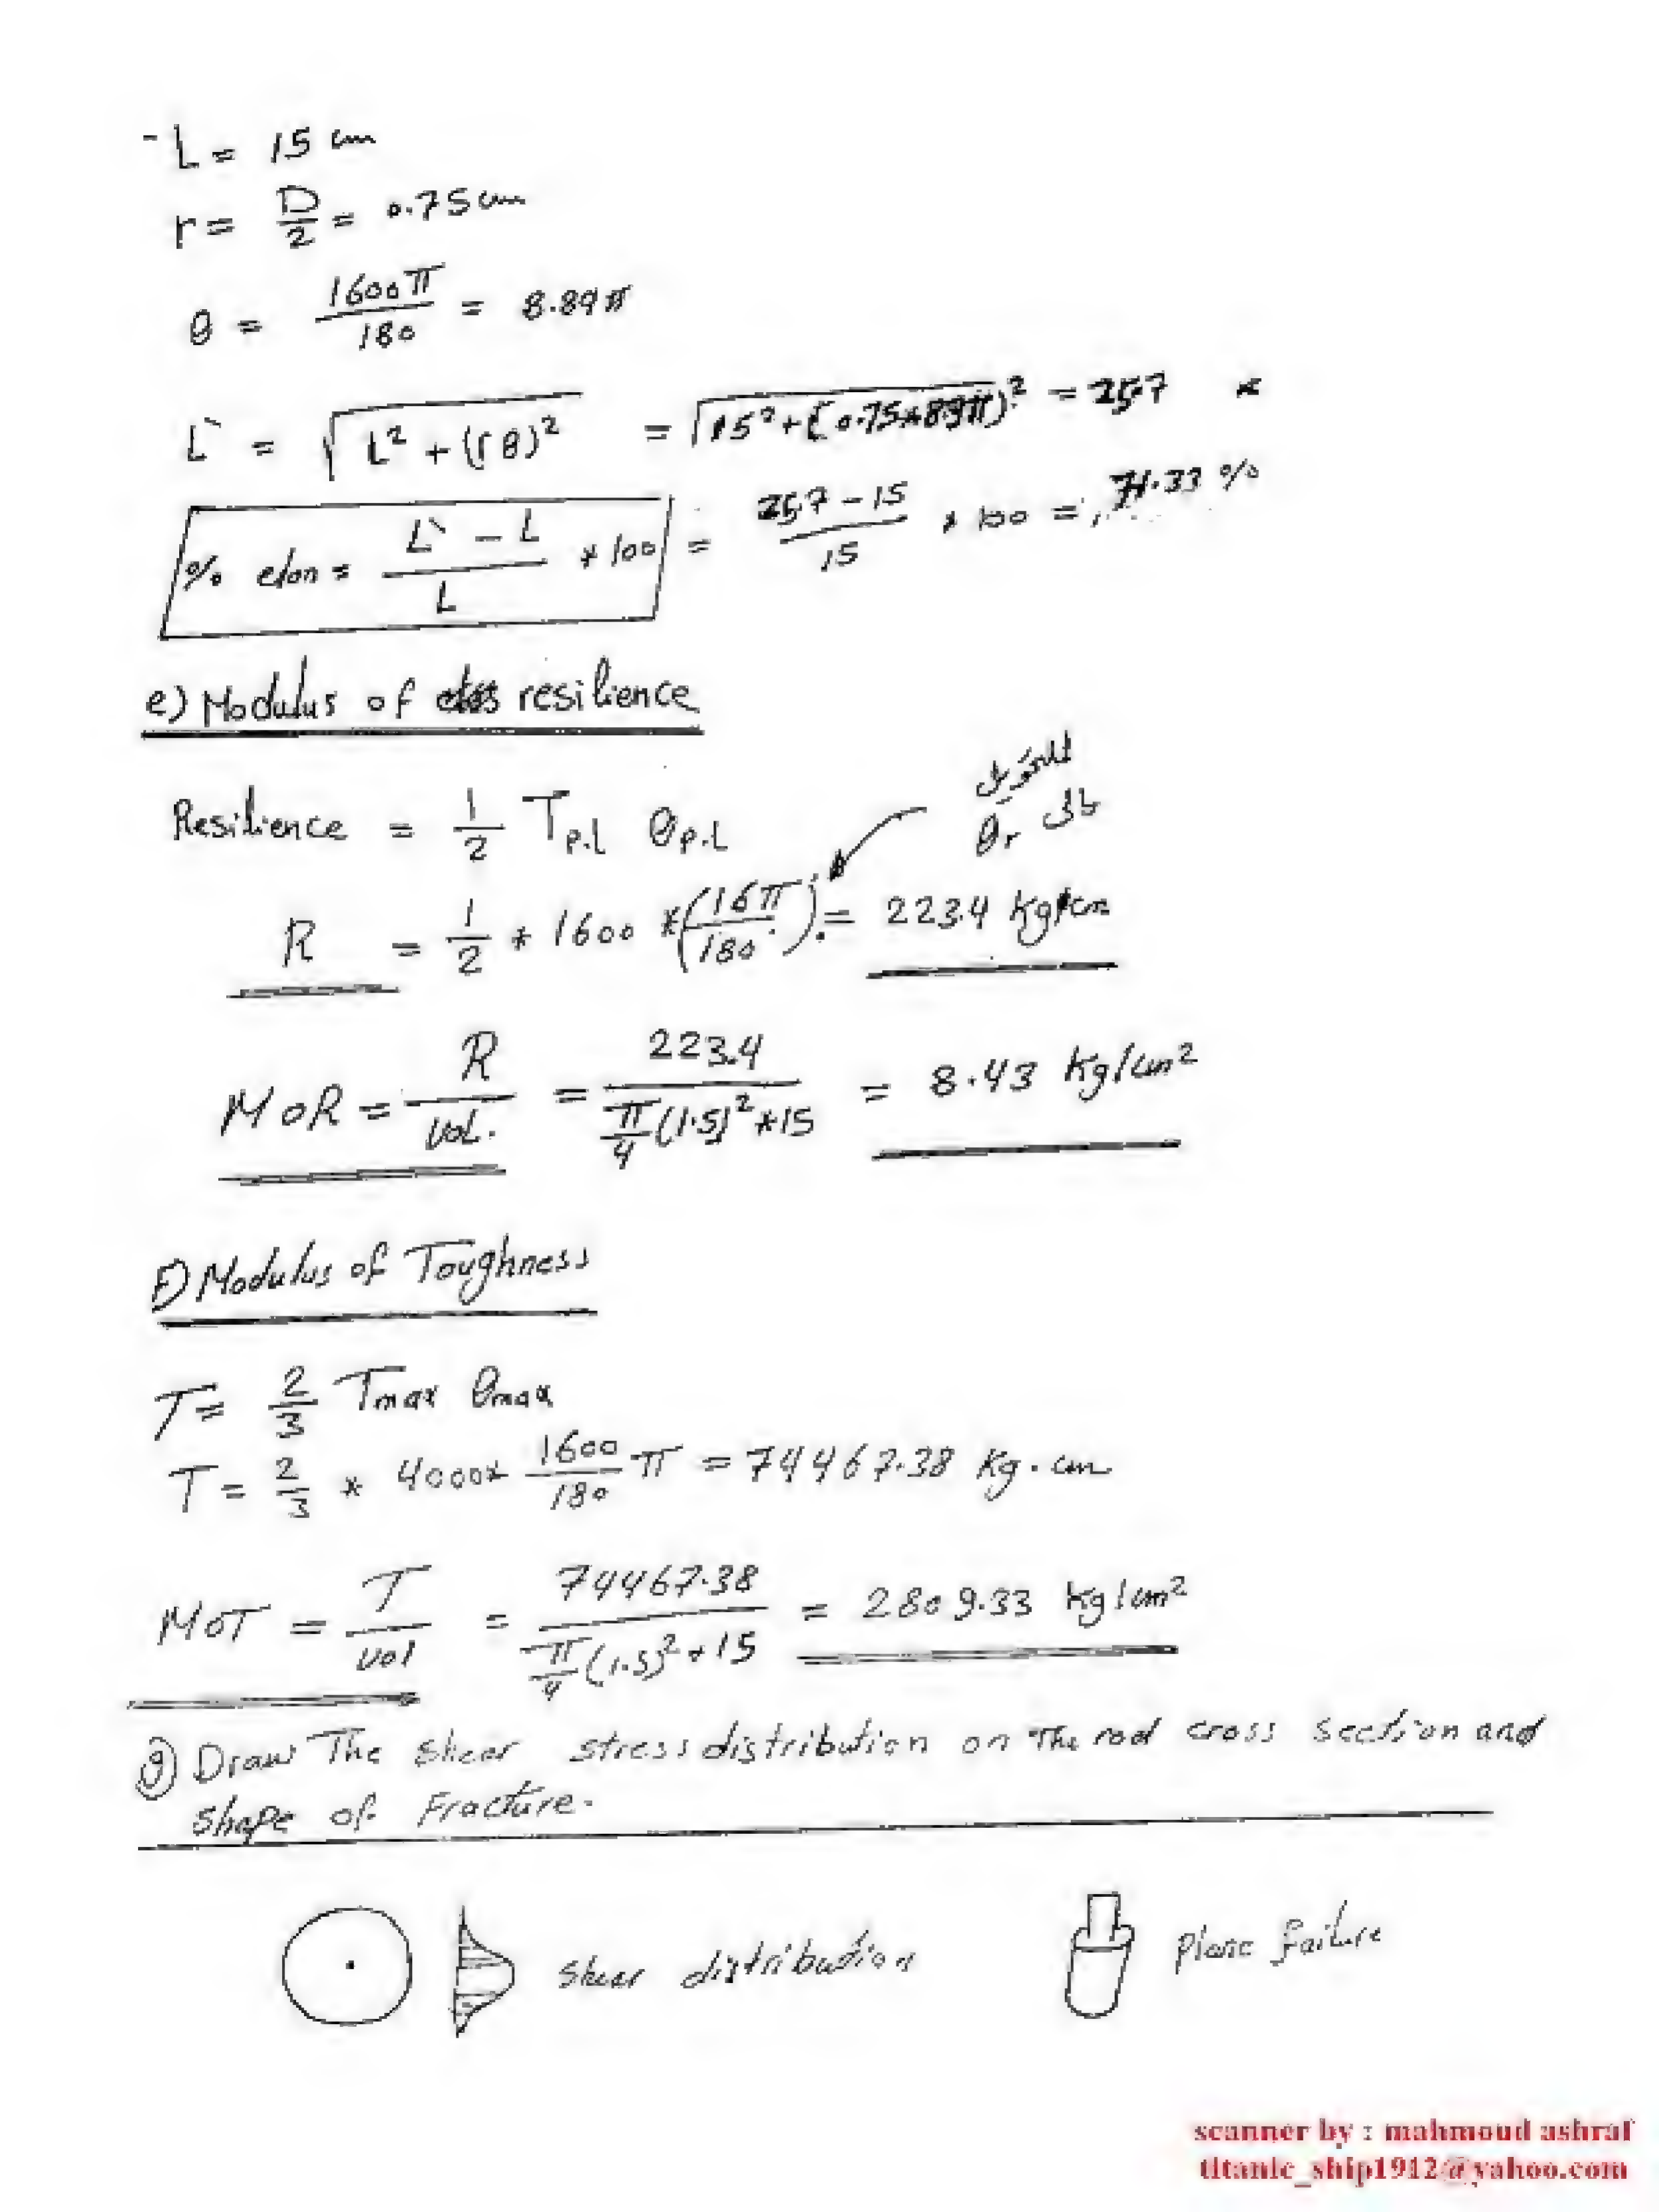 - L = 15 cm
r = D/2 = 0.75 cm
θ = 1600π/180 = 8.89π
L` = √(L² + (rθ)²) = √(15² + (0.75*8.89π)²) = 25,7
% elon = (L` - L)/L * 100 = (25,7 - 15)/15 * 100 = 71.33 %
e) Modulus of resilience
Resilience = 1/2 T_P.L θ_P.L
التحويل
θr الى
R = 1/2 * 1600 * (16π/180) = 223.4 Kg*cm
MOR = R/vol. = 223.4/(π/4 (1.5)² * 15) = 8.43 Kg/cm²
F) Modulus of Toughness
T = 2/3 Tmax θmax
T = 2/3 * 4000* 1600/180 π = 74467.38 Kg.cm
MOT = T/vol = 74467.38/(π/4 (1.5)² * 15) = 2809.33 Kg/cm²
g) Draw The shear stress distribution on The rod cross section and
shape of Fracture.
shear distribution
Plane failure
scanner by : mahmoud ashraf
titanic_ship1912@yahoo.com